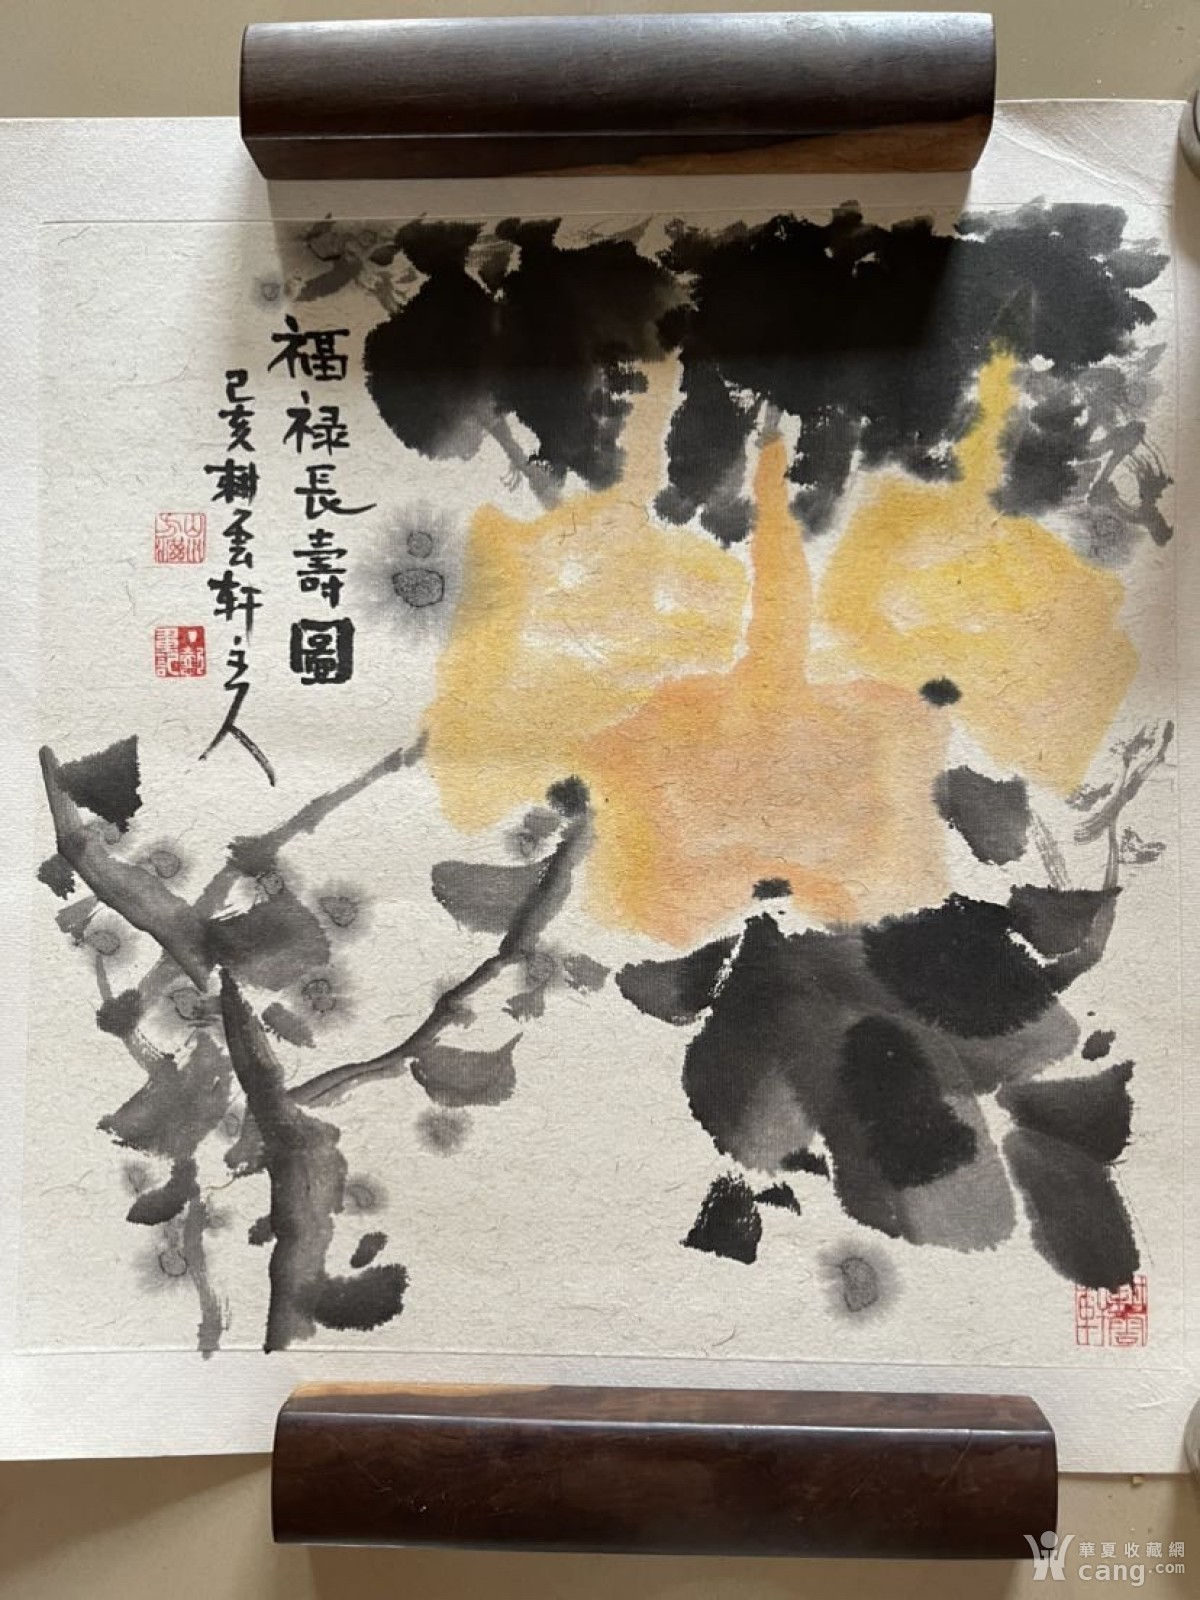 福禄長壽圖
己亥耕雲轩主人
華夏收藏網
cang.com